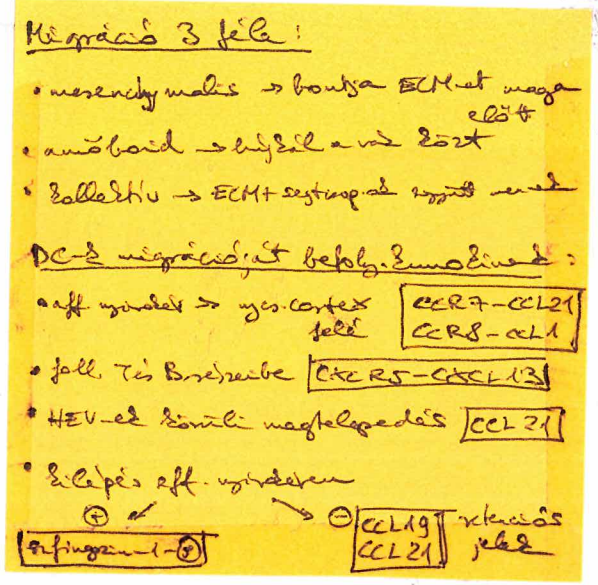 Migráció 3 féle:
• mesenchymalis → bontja ECM-et maga
előtt
• amőboid → bújkál a váz közt
• kollektív → ECM + sejtcsop.ok együtt mennek
DC-k migrációját befoly. kemokinek:
• aff. nyirokér → nycs. cortex felé
CCR7-CCL21
CCR8-CCL1
• foll. T és B sejteibe CXCR5-CXCL13
• HEV-ek körüli megtelepedés CCL21
• kilépés eff. nyirokéren
⊕ ↙ ↘ ⊖
szfingozin-1-Ⓟ
CCL19
CCL21
retenciós
jelek